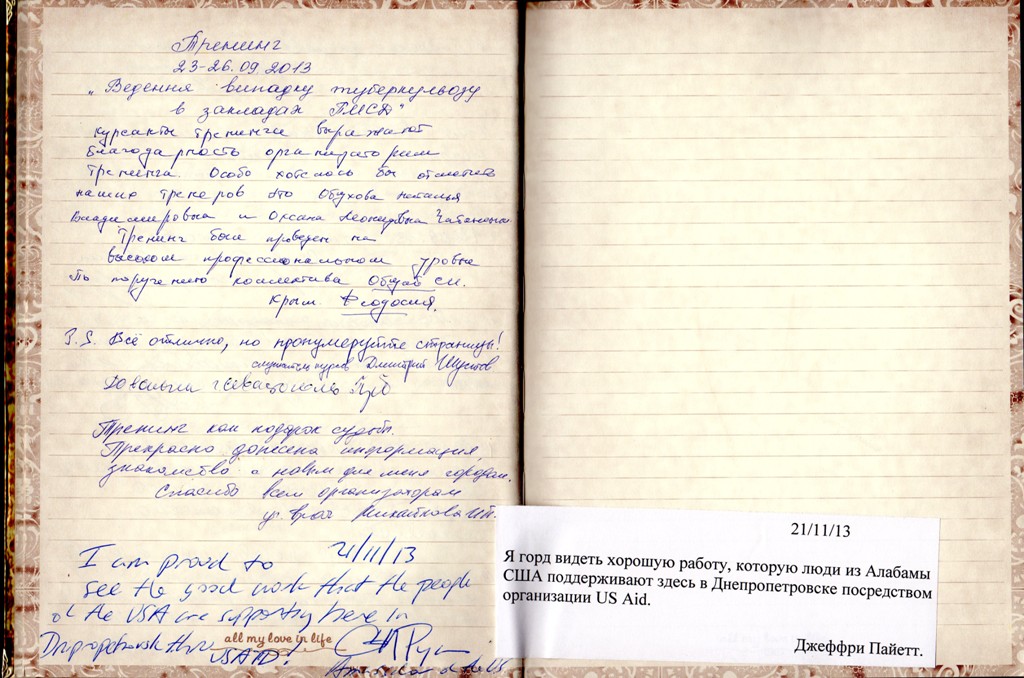 Тренинг
23-26.09.2013
"Ведення випадку туберкульозу
в закладах ПМСД"
курсанты тренинга выражают
благодарность организаторам
тренинга. Особо хотелось бы отметить
наших тренеров это Обухова Наталья
Владимировна и Оксана Леонидовна
Тренинг был проведен на
высоком профессиональном уровне
По поручению коллектива
Крым Феодосия.
P.S. Всё отлично, но пронумеруйте страницы!
слушатель курсов Дмитрий Шустов
Тренинг как подарок судьбы.
Прекрасно донесена информация,
знакомство с новым для меня городом.
Спасибо всем организаторам
врач Михайлова
21/11/13
I am proud to
see the good work that the people
of the USA are supporting here in
Dnipropetrovsk thru
all my love in life
USAID!
21/11/13
Я горд видеть хорошую работу, которую люди из Алабамы
США поддерживают здесь в Днепропетровске посредством
организации US Aid.
Джеффри Пайетт.